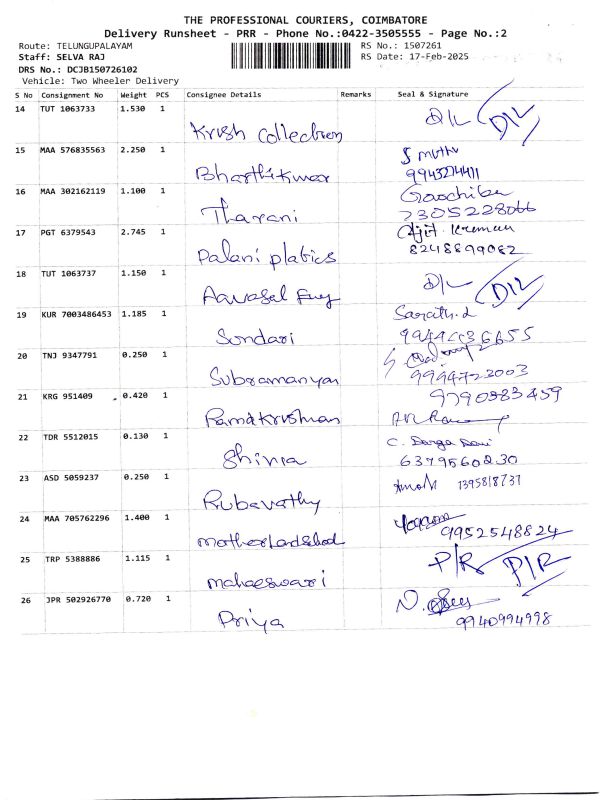 THE PROFESSIONAL COURIERS, COIMBATORE
Delivery Runsheet - PRR - Phone No.:0422-3505555 - Page No.:2
Route: TELUNGUPALAYAM RS No.: 1507261
Staff: SELVA RAJ RS Date: 17-Feb-2025
DRS No.: DCJB150726102
Vehicle: Two Wheeler Delivery
S No Consignment No Weight PCS Consignee Details Remarks Seal & Signature
14 TUT 1063733 1.530 1 D/L D/L
Krish Collection
15 MAA 576835563 2.250 1 S muthu
Bharthikumar 9943274411
16 MAA 302162119 1.100 1
Tharani 7305228066
17 PGT 6379543 2.745 1 Ajit kumar
Palani platics 8248899082
18 TUT 1063737 1.150 1 D/L D/L
19 KUR 7003486453 1.185 1 Sarath.
Sundari
20 TNJ 9347791 0.250 1
Subramanyan
21 KRG 951409 0.420 1 9790383459
Ramakrishnan
22 TDR 5512015 0.130 1 C. Durga Devi
6379560230
23 ASD 5059237 0.250 1
Rubavathy
24 MAA 705762296 1.400 1
9952548824
25 TRP 5388886 1.115 1 P/R P/R
Maheswari
26 JPR 502926770 0.720 1
Priya 9940994998